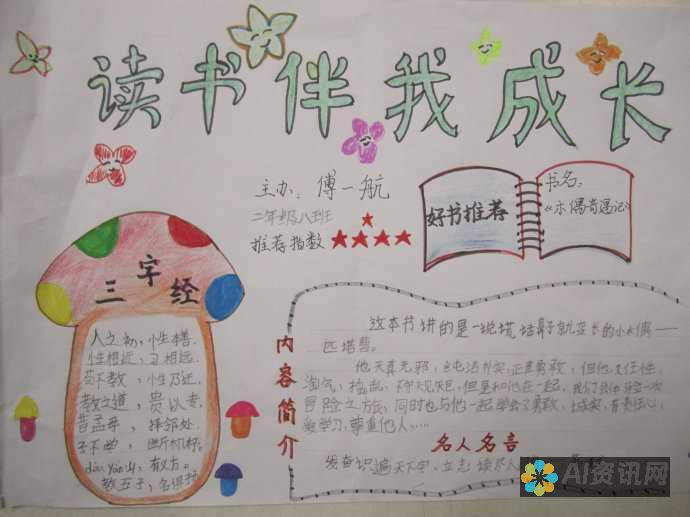 读书伴我成长
主办：傅一航
二年级八班
推荐指数
好书推荐
书名：
《木偶奇遇记》
三字经
人之初，性本善.
性相近，习相远.
苟不教，性乃迁.
教之道，贵以专.
昔孟母，择邻处.
子不学，断机杼.
dòu yān shān，有义方。
教五子，名俱扬
内容简介
这本书讲的是一说谎，结鼻子就变长的小木偶——
匹诺曹。
他天真无邪，
勇敢，但他又任性，
淘气，捣乱，不
但是和他在一起，我们会体验一次
冒险之旅，同时也与他一起学会了勇敢、诚实、有责任心、
爱学习、尊重他人……
名人名言
发奋识遍天下字，立志读尽人
AI资讯网